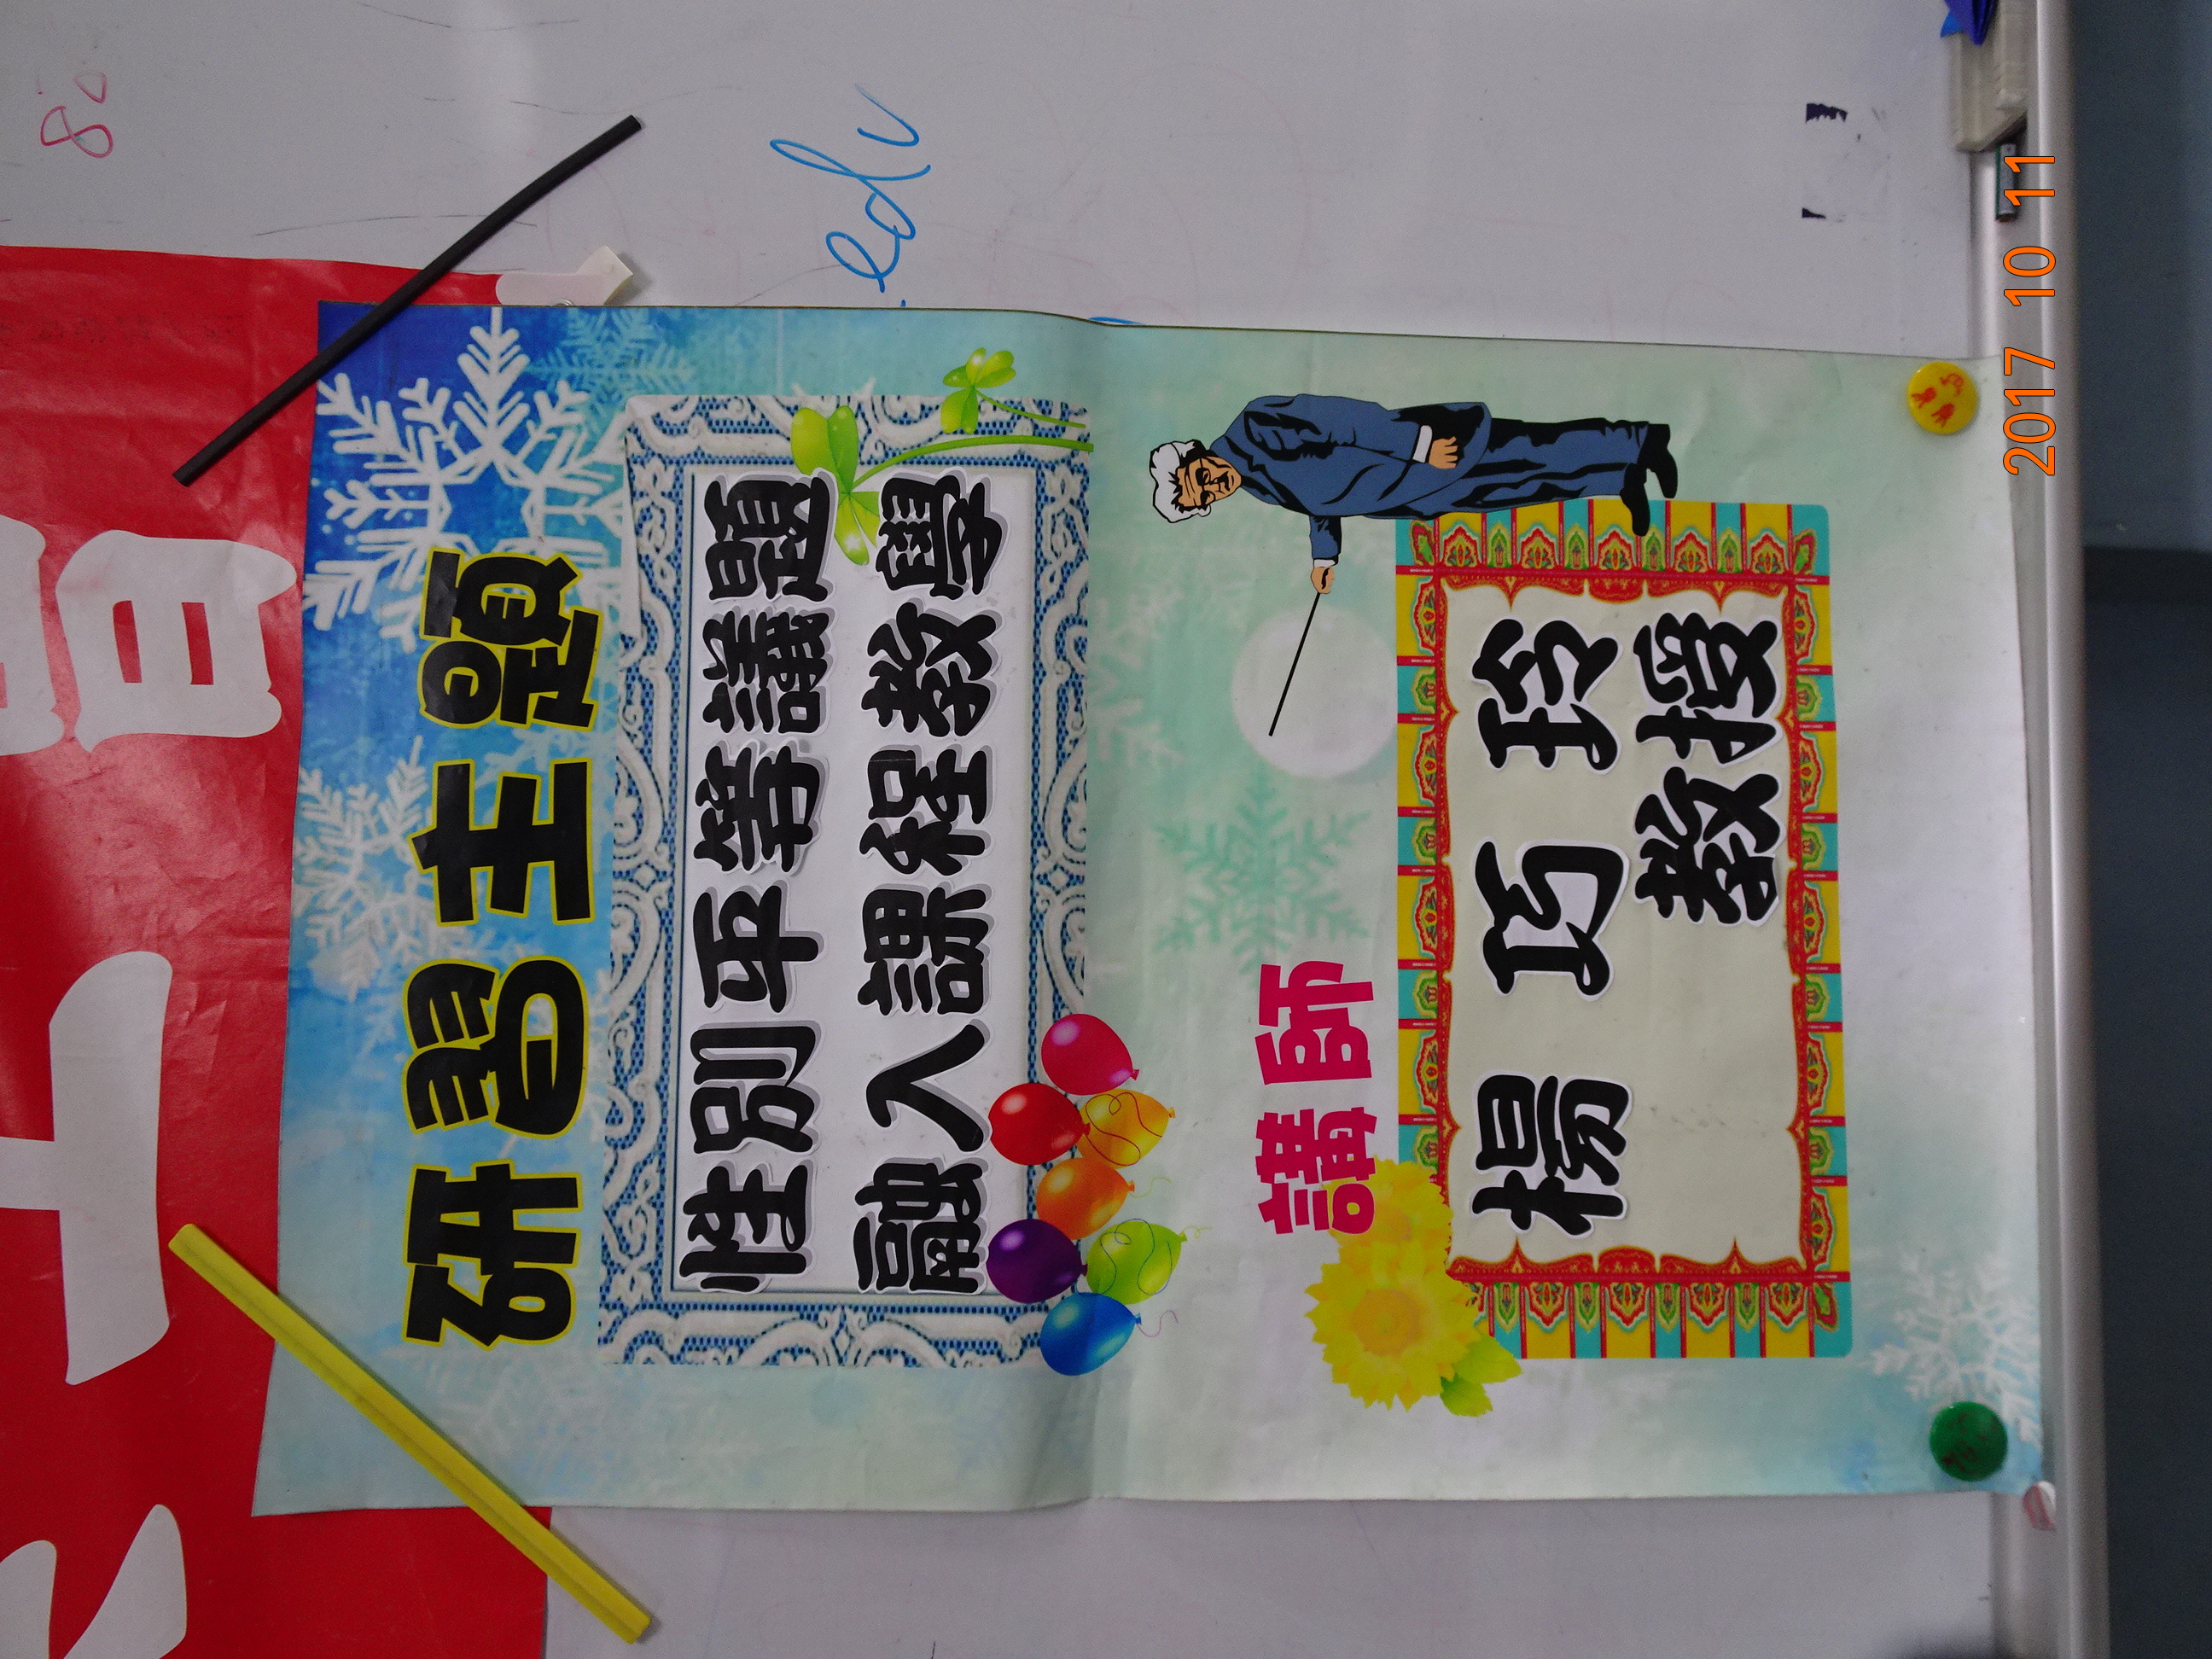 研習主題
性別平等議題
融入課程教學
講師
楊巧玲
教授
.edu
80
2017 10 11